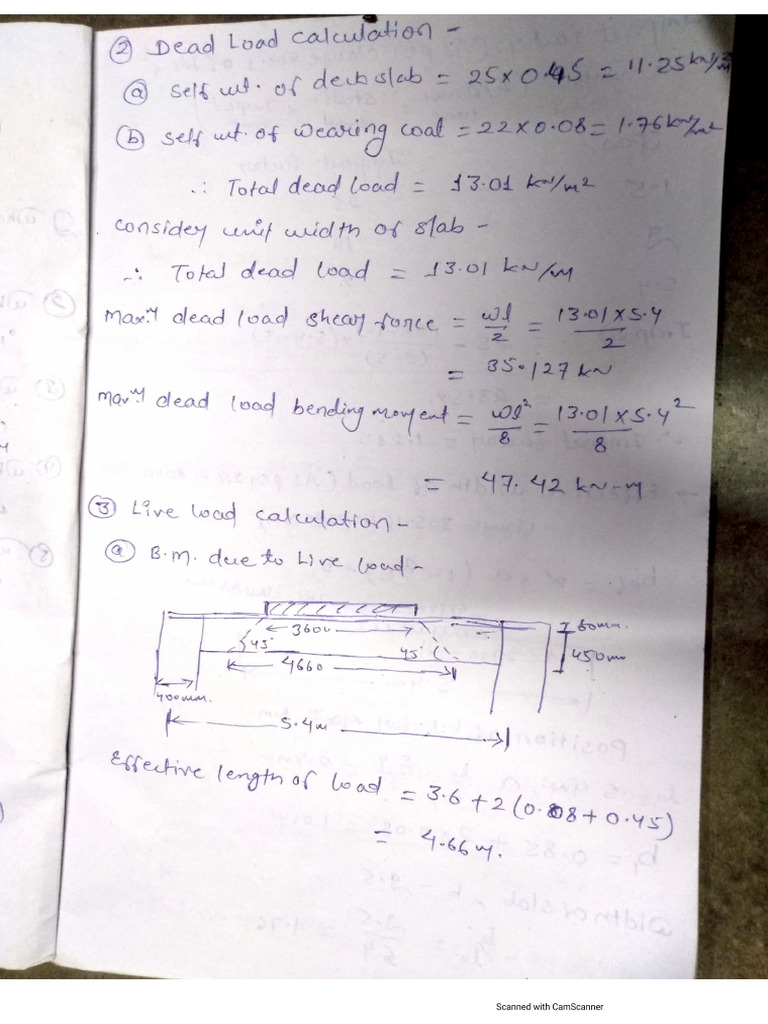 ② Dead Load calculation -
ⓐ Self wt. of deck slab = 25 x 0.45 = 11.25 kN/m²
ⓑ Self wt. of wearing coat = 22 x 0.08 = 1.76 kN/m²
∴ Total dead load = 13.01 kN/m²
consider unit width of slab -
∴ Total dead load = 13.01 kN/m
Max.m dead load shear force = wl/2 = 13.01 x 5.4/2
= 35.127 kN
Max.m dead load bending moment = wl²/8 = 13.01 x 5.4²/8
= 47.42 kN-m
③ Live load calculation -
ⓐ B.M. due to Live load -
3600
80mm.
45°
45°
450mm
4660
400mm.
5.4m
Effective length of load = 3.6 + 2(0.08 + 0.45)
= 4.66 m.
Scanned with CamScanner